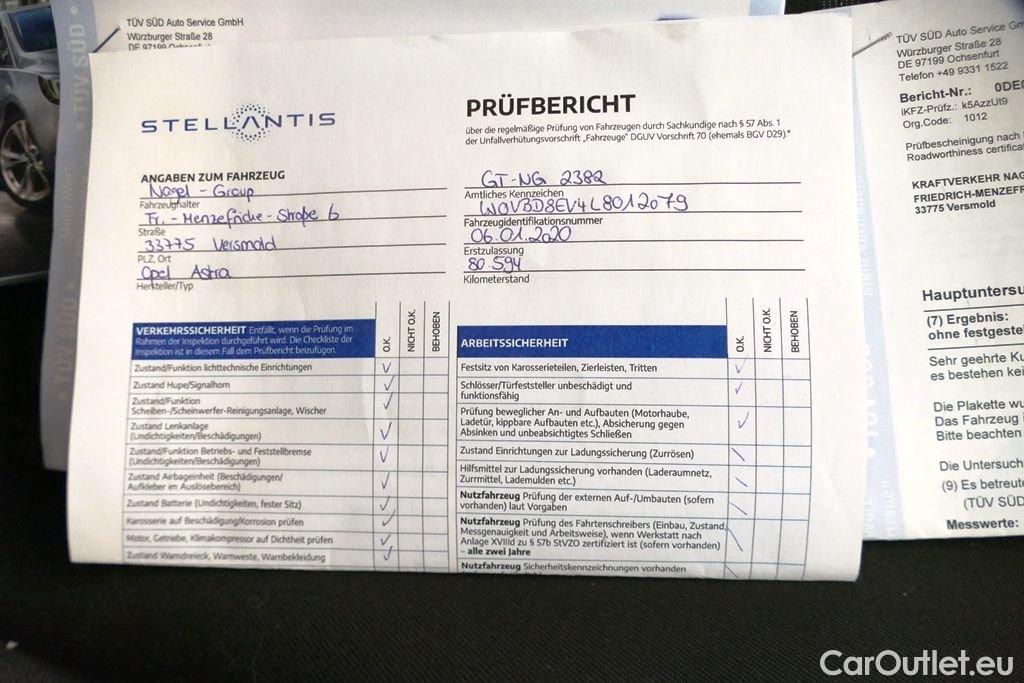 TÜV SÜD Auto Service GmbH
Würzburger Straße 28
DE 97199 Ochsenfurt
TÜV SÜD
STELLANTIS
PRÜFBERICHT
über die regelmäßige Prüfung von Fahrzeugen durch Sachkundige nach § 57 Abs. 1
der Unfallverhütungsvorschrift „Fahrzeuge" DGUV Vorschrift 70 (ehemals BGV D29).*
ANGABEN ZUM FAHRZEUG
Nagel - Group
Fahrzeughalter
Fr. - Menzefricke - Straße 6
Straße
33775 Versmold
PLZ, Ort
Opel Astra
Hersteller/Typ
GT-NG 2382
Amtliches Kennzeichen
W0VBD8EV4L8012079
Fahrzeugidentifikationsnummer
06.01.2020
Erstzulassung
80.594
Kilometerstand
VERKEHRSSICHERHEIT Entfällt, wenn die Prüfung im
Rahmen der Inspektion durchgeführt wird. Die Checkliste der
Inspektion ist in diesem Fall dem Prüfbericht beizufügen.
O.K.
NICHT O.K.
BEHOBEN
Zustand/Funktion lichttechnische Einrichtungen
Zustand Hupe/Signalhorn
Zustand/Funktion
Scheiben-/Scheinwerfer-Reinigungsanlage, Wischer
Zustand Lenkanlage
(Undichtigkeiten/Beschädigungen)
Zustand/Funktion Betriebs- und Feststellbremse
(Undichtigkeiten/Beschädigungen)
Zustand Airbageinheit (Beschädigungen/
Aufkleber im Auslösebereich)
Zustand Batterie (Undichtigkeiten, fester Sitz)
Karosserie auf Beschädigung/Korrosion prüfen
Motor, Getriebe, Klimakompressor auf Dichtheit prüfen
Zustand Warndreieck, Warnweste, Warnbekleidung
ARBEITSSICHERHEIT
O.K.
NICHT O.K.
BEHOBEN
Festsitz von Karosserieteilen, Zierleisten, Tritten
Schlösser/Türfeststeller unbeschädigt und
funktionsfähig
Prüfung beweglicher An- und Aufbauten (Motorhaube,
Ladetür, kippbare Aufbauten etc.), Absicherung gegen
Absinken und unbeabsichtigtes Schließen
Zustand Einrichtungen zur Ladungssicherung (Zurrösen)
Hilfsmittel zur Ladungssicherung vorhanden (Laderaumnetz,
Zurrmittel, Lademulden etc.)
Nutzfahrzeug Prüfung der externen Auf-/Umbauten (sofern
vorhanden) laut Vorgaben
Nutzfahrzeug Prüfung des Fahrtenschreibers (Einbau, Zustand,
Messgenauigkeit und Arbeitsweise), wenn Werkstatt nach
Anlage XVIIId zu § 57b StVZO zertifiziert ist (sofern vorhanden)
– alle zwei Jahre
Nutzfahrzeug Sicherheitskennzeichnungen vorhanden
TÜV SÜD Auto Service Gm
Würzburger Straße 28
DE 97199 Ochsenfurt
Telefon +49 9331 1522
Bericht-Nr.: 0DE
iKFZ-Prüfz.: k5AzzUt9
Org.Code: 1012
Prüfbescheinigung nach
Roadworthiness certifica
KRAFTVERKEHR NAG
FRIEDRICH-MENZEFF
33775 Versmold
Hauptuntersu
(7) Ergebnis:
ohne festgeste
Sehr geehrte Ku
es bestehen kei
Die Plakette wu
Das Fahrzeug
Bitte beachten
Die Untersuch
(9) Es betreute
(TÜV SÜD
Messwerte:
CarOutlet.eu